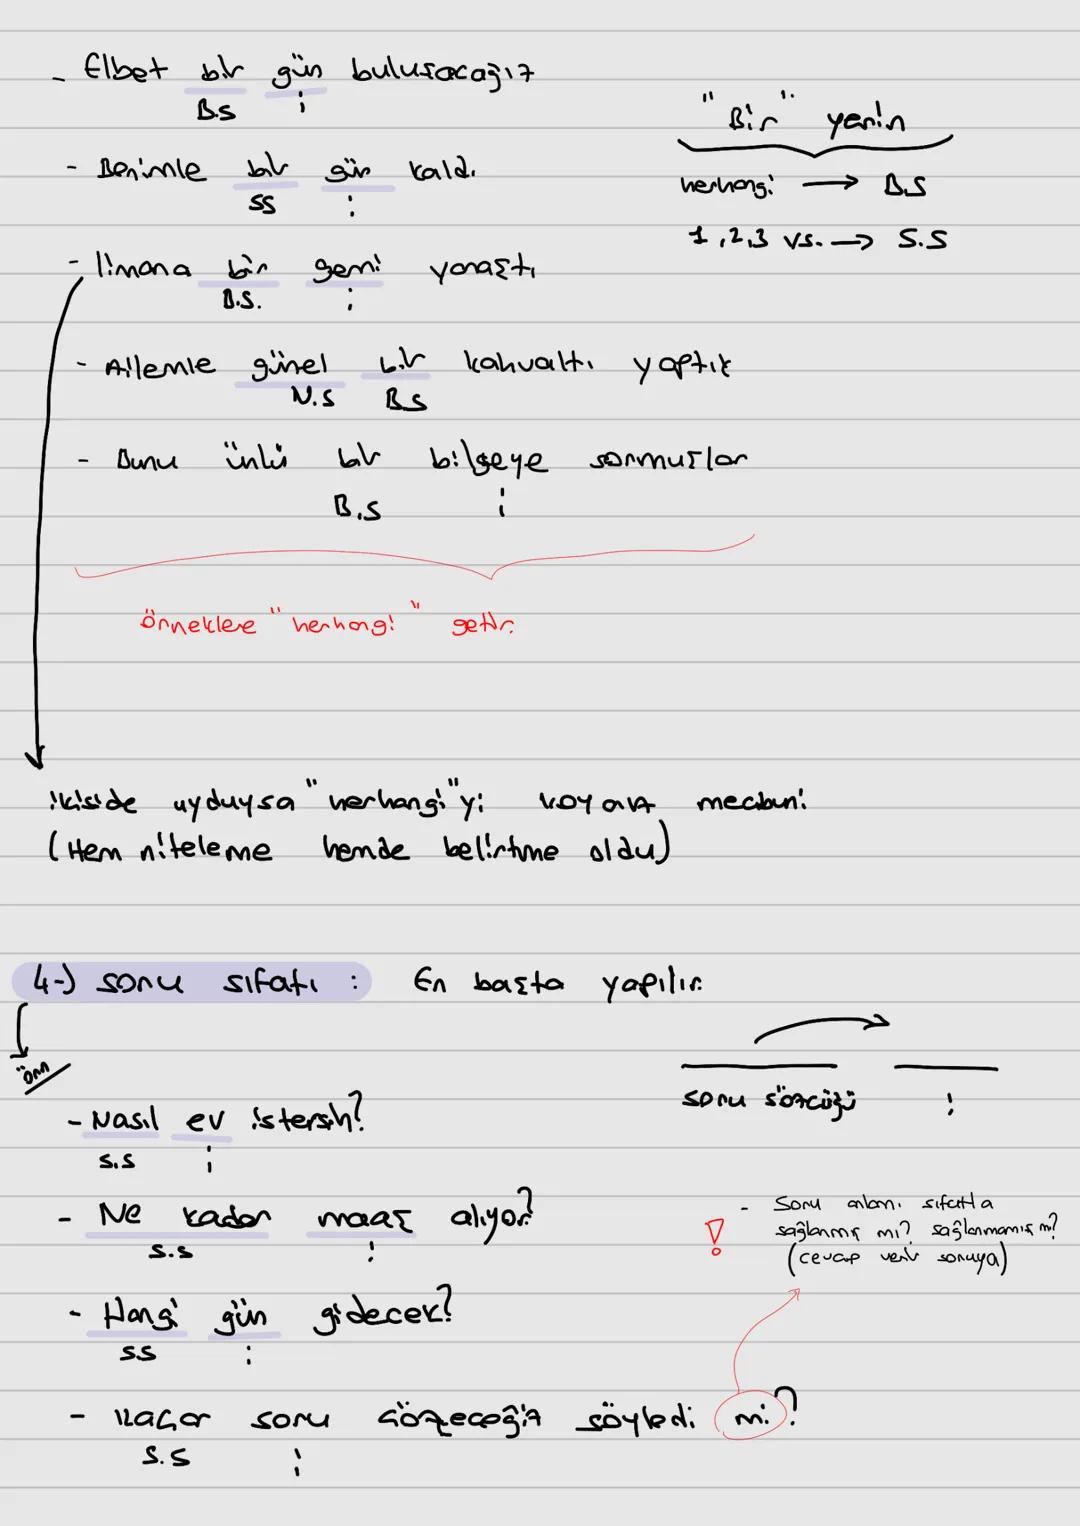 - Elbet bir gün buluşacağız
B.S i
"Bir" yerin
- Benimle bir gün kaldı.
SS i
herhangi → B.S
1,2,3 vs. → S.S
- limana bir gemi yanaştı
B.S. i
- Ailemle güzel bir kahvaltı yaptık
N.S B.S
- Bunu ünlü bir bilgeye sormuşlar
B.S i
örneklere "herhangi" getir.
ikiside uyduysa "herhangi"yi koyarız mecburi
(Hem niteleme hemde belirtme oldu)
4-) soru sıfatı : En başta yapılır.
örn
soru sözcüğü i
- Nasıl ev istersin?
S.S i
- Ne kadar maaş alıyor?
S.S i
! - Soru anlamı sıfatla
sağlanmış mı? sağlanmamış mı?
(cevap verir soruya)
- Hangi gün gidecek?
SS i
- Kaçar soru çözeceğiz söyledi mi?
S.S i